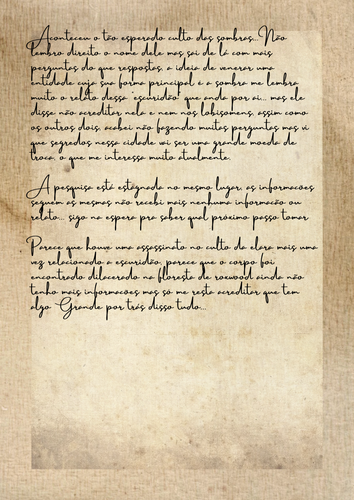 Aconteceu o tão esperado culto das sombras.. Não
lembro direito o nome dele mas sai de lá com mais
perguntas do que respostas, a ideia de venerar uma
entidade cuja sua forma principal é a sombra me lembra
muito o relato dessa "escuridão" que anda por ai... mas ele
disse não acreditar nela e nem nos lobisomens, assim como
os outros dois, acabei não fazendo muitas perguntas mas vi
que segredos nessa cidade vai ser uma grande moeda de
troca, o que me interessa muito atualmente.
A pesquisa está estagnada no mesmo lugar, as informações
seguem as mesmas não recebi mais nenhuma informação ou
relato... sigo na espera pra saber qual próximo passo tomar
Parece que houve uma assassinato no culto da clara mais uma
vez relacionado a escuridão, parece que o corpo foi
encontrado dilacerado na floresta de roewood ainda não
tenho mais informações mas só me resta acreditar que tem
algo Grande por trás disso tudo...